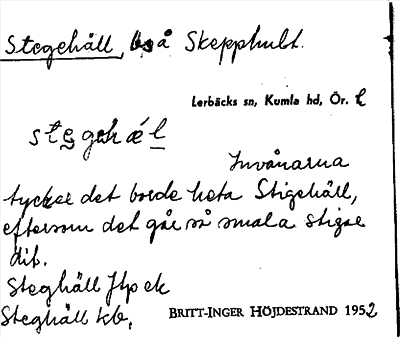 Stegehäll, bs å Skepphult.
Lerbäcks sn, Kumla hd, Ör. l
stegehæ´l
Invånarna
tycker det borde heta Stigehäll,
eftersom det går så smala stigar
dit.
Steghäll Jfp ek
Steghäll kb.
BRITT-INGER HÖJDESTRAND 1952